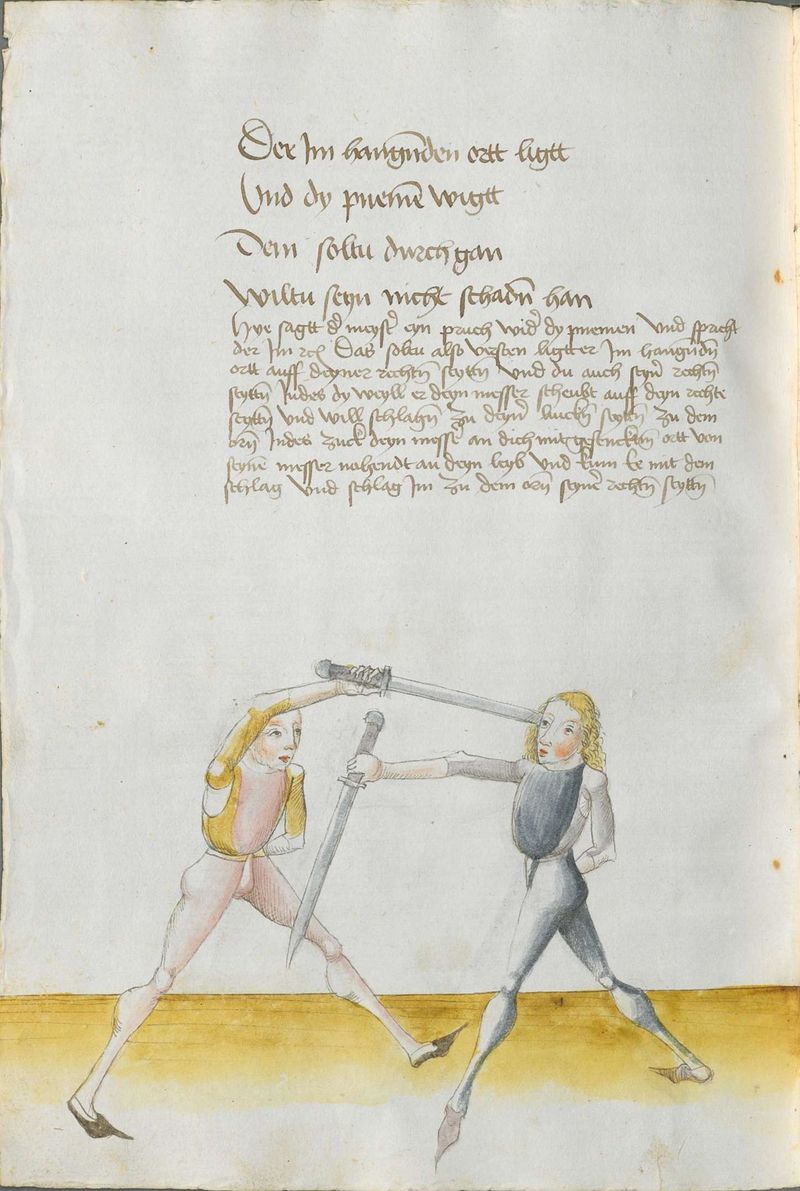 Der Im hangnden ortt ligtt
Und dy pnemē wigtt
Dem soltu durchgan
Wiltu seyn nicht schadn han
Hye sagtt d' meyst' eyn pruch wid' dy pnemen Und spricht
der Im rc Das soltu also versten ligtt er Im hangndn
ortt auff deyner rechtn seyttn Und du auch seyn' rechtn
seyttn Indes dy weyll er deyn messer scheubt auff deyn rechte
seyttn Und will schlahn zu deyn' lincken seyttn zu dem
orn Indes zuck deyn messer an dich mit gesencktem ortt von
seynē messer nahendt an deyn leyb Und kum Ee mit dem
schlag Und schlag Im zu dem orn seyne' rechtn seyttn